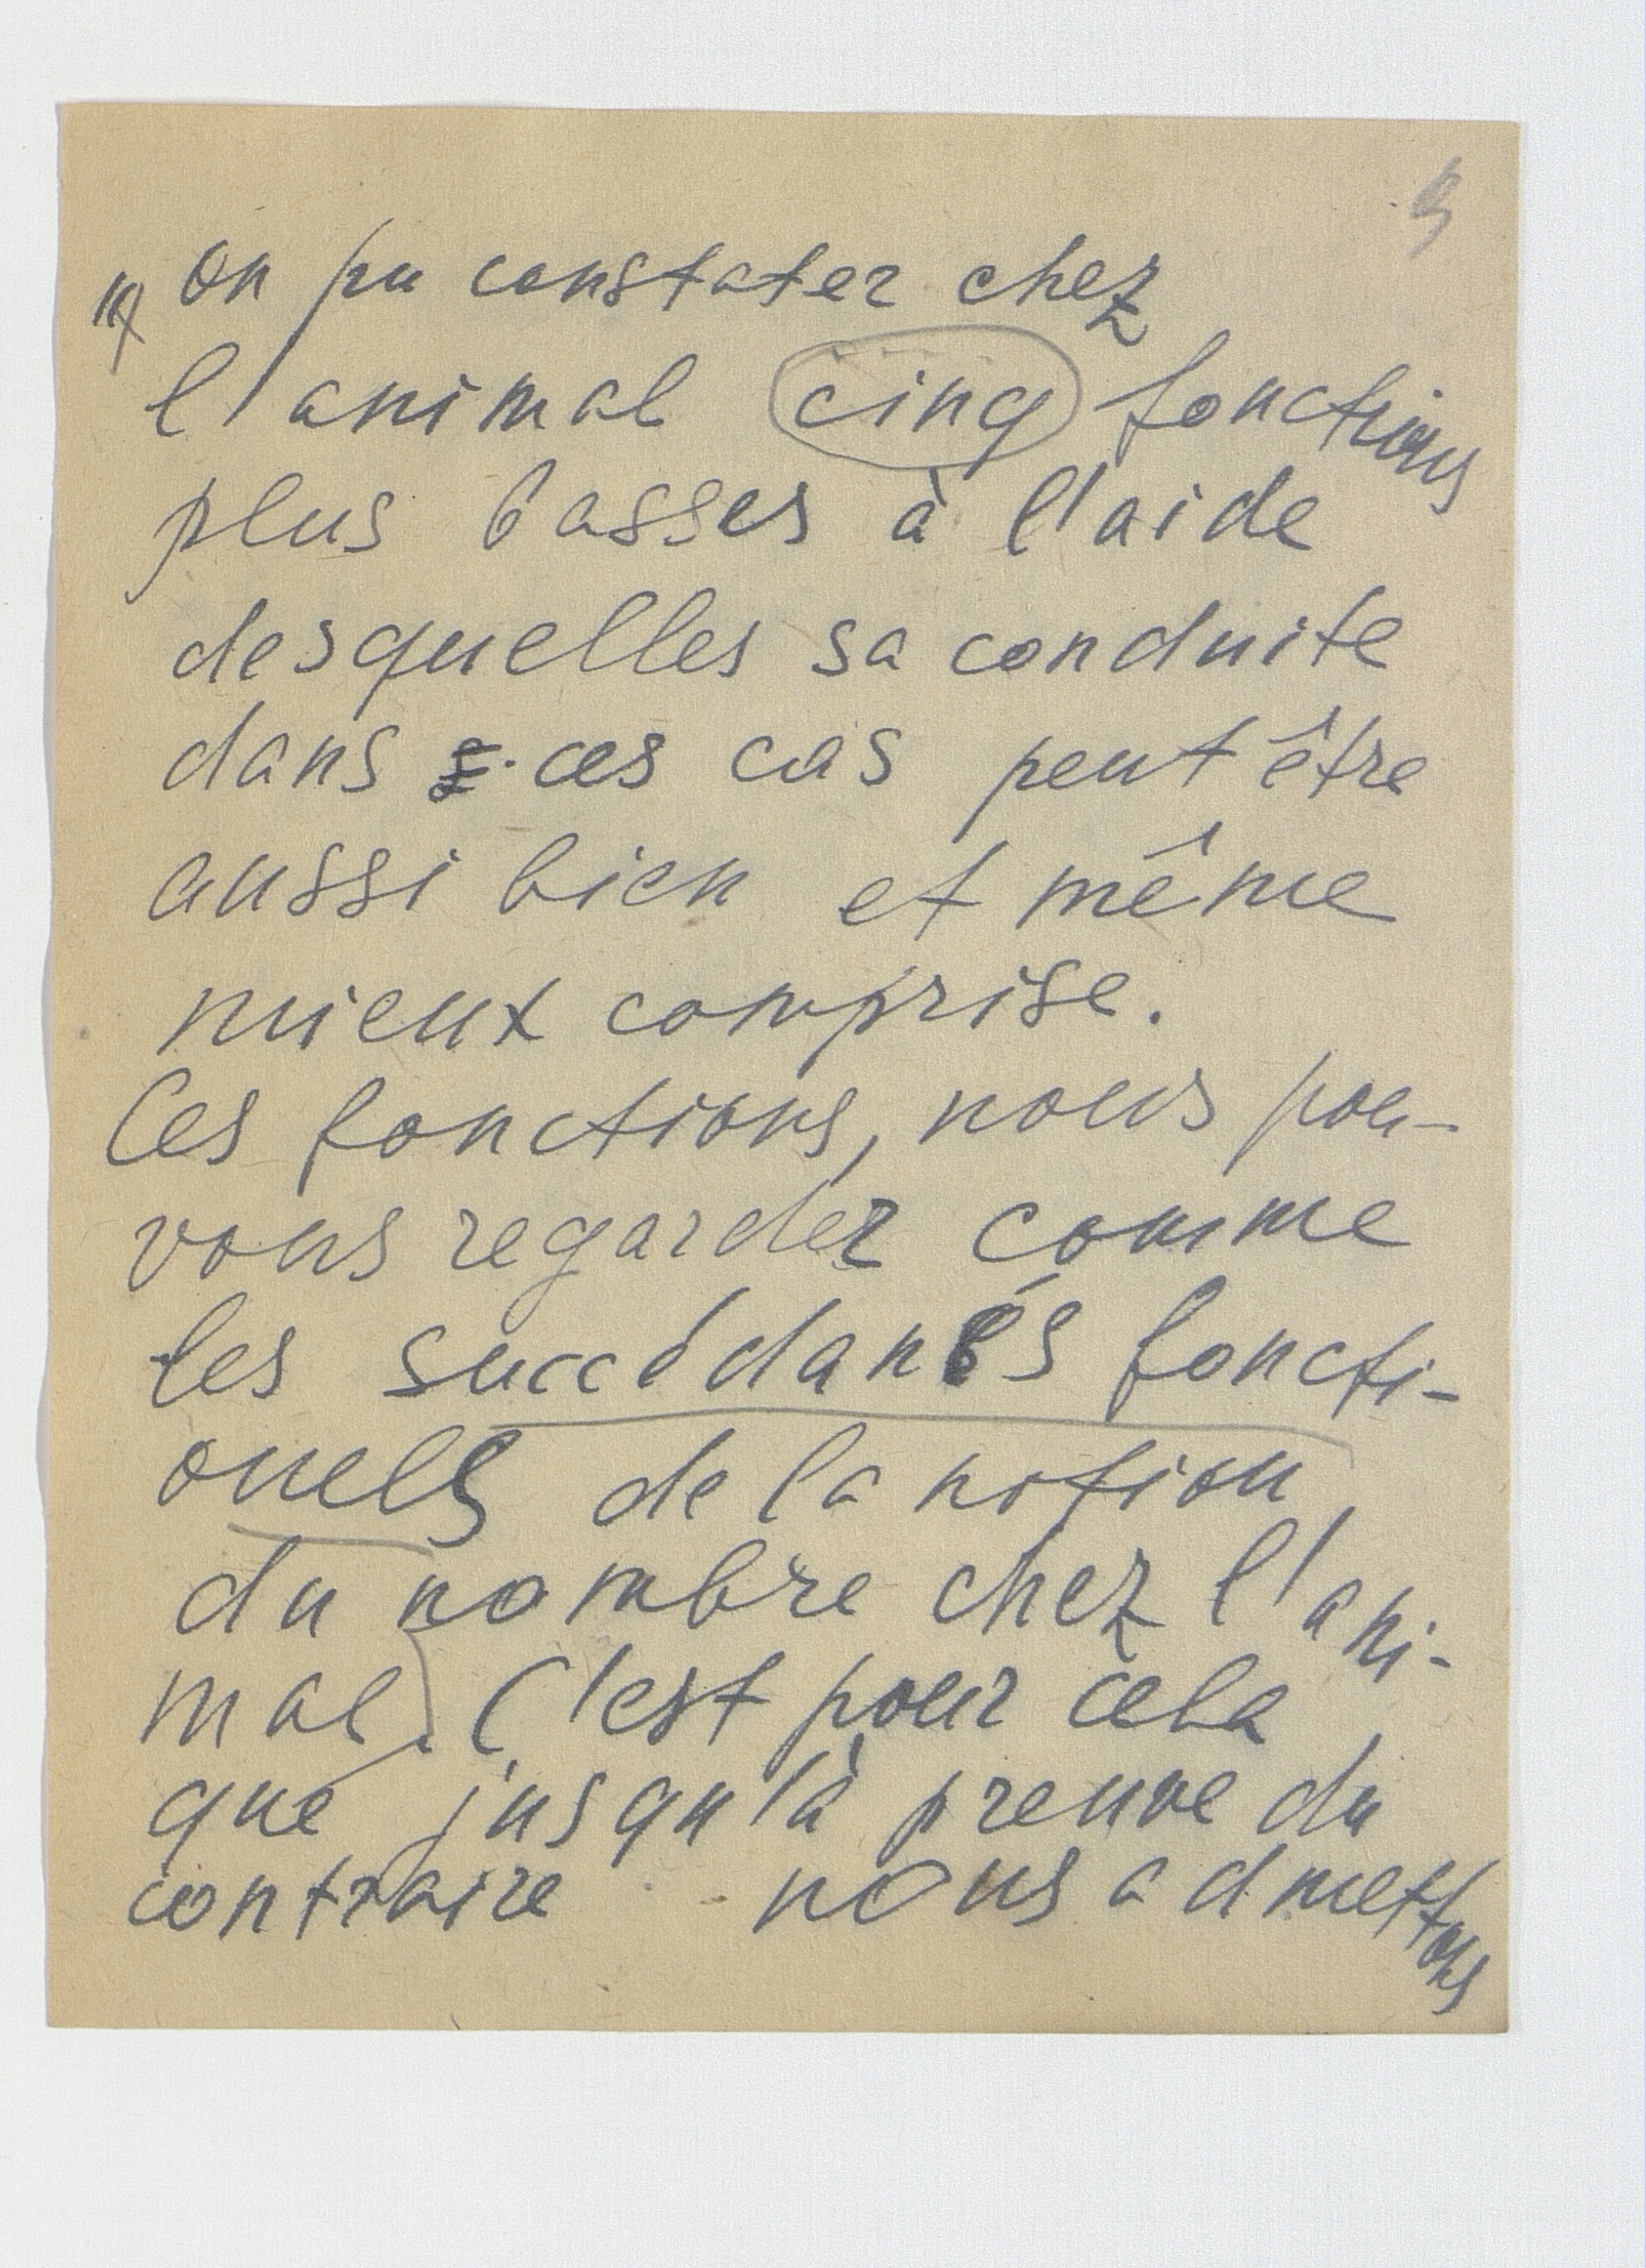 on pu constater chez
l'animal cinq fonctions
plus basses à l'aide
desquelles sa conduite
dans ces cas peut être
aussi bien et même
mieux comprise.
Ces fonctions, nous pou-
vons regarder comme
les succédanés foncti-
onels de la notion
du nombre chez l'ani-
mal. C'est pour cela
que jusqu'à preuve du
contraire nous admettons